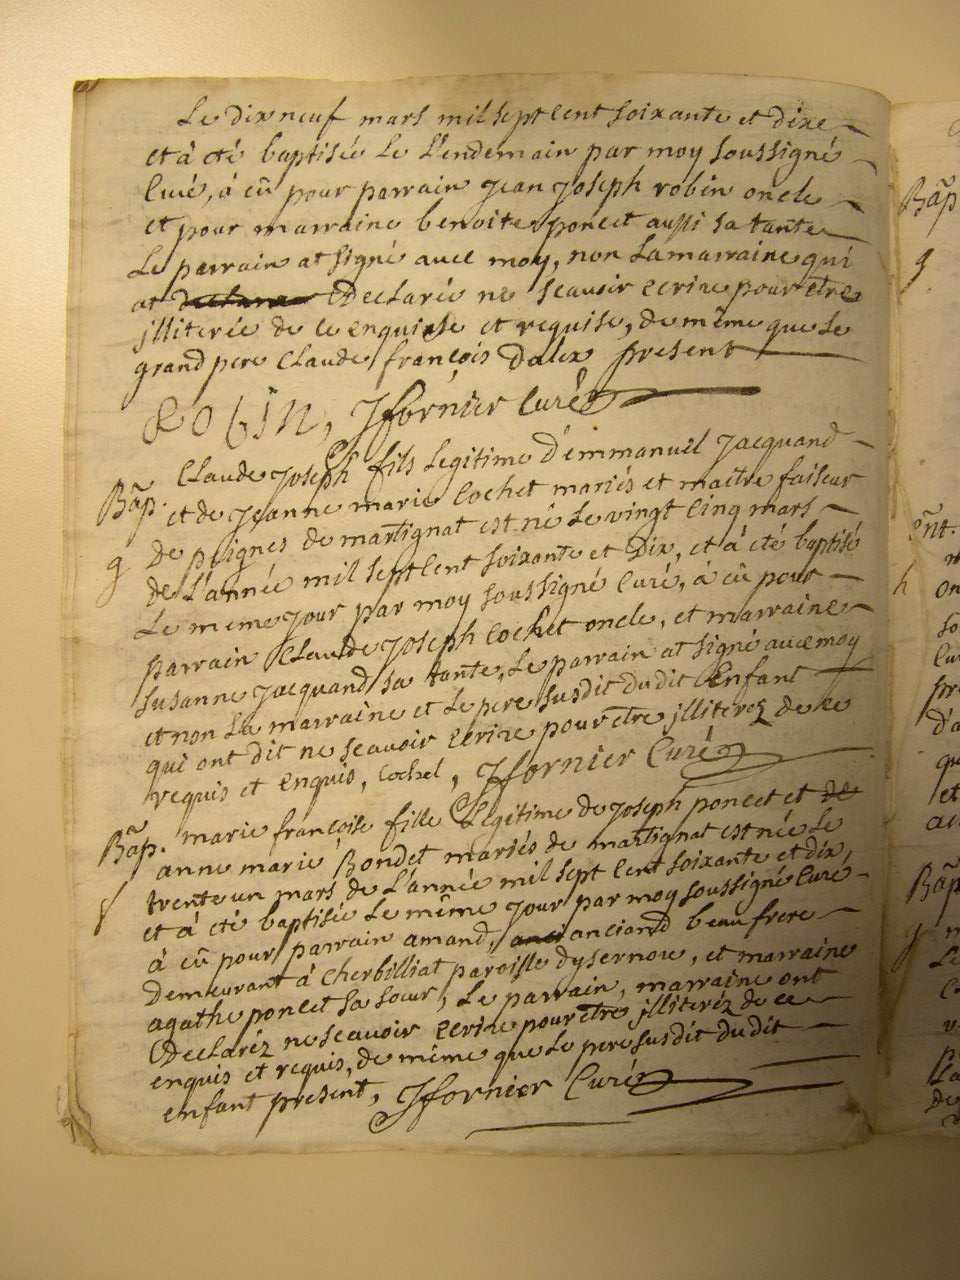 Le dix neuf mars mil sept cent soixante et dixe
et à eté baptisée Le L'endemain par moy soussigné
Curé, à eû pour parrain Jean Joseph robin oncle
et pour marraine benoite poncet aussi sa tante
Le parrain at signé avec moy, non La marraine qui
at Declaré ne scavoir ecrire pour être
jlliterée de ce enquise et requise, de même que Le
grand pere Claude françois Dalex present
ROBIN, Jffornier Curé
Claude Joseph fils Legitime d'émmanuel Jacquand
Bãp. et de Jeanne marie Cochet mariés et maitre faiseur
g de peignes de martignat est né Le vingt Cinq mars
de L'année mil sept Cent soixante et Dix, et à eté baptisé
Le meme jour par moy soussigné Curé, à eû pour
parrain Claude Joseph Cochet oncle, et marraine
susanne Jacquand sa tante, Le parrain at signé avec moy
et non La marraine et Le pere susdit dudit Enfant
qui ont dit ne scavoir ecrire pour être jlliterez de ce
requis et enquis, Cochet, Jffornier Curé
Bãp. marie françoise fille Legitime de Joseph poncet et de
anne marie Bondet mariés de martignat est née Le
trente un mars de L'année mil sept Cent soixante et dix,
et à eté baptisée Le même jour par moy soussigné Curé
à eû pour parrain amand, anciand beau frere
demeurant à Cherbilliat paroisse dysernore, et marraine
agathe poncet sa soeur, Le parrain, marraine ont
Declaréz ne scavoir ecrire pour être jlliteréz de ce
enquis et requis, de même que Le pere susdit du dit
enfant present, Jffornier Curé
Bãp
g
ẽnt.
h
Bãp
g